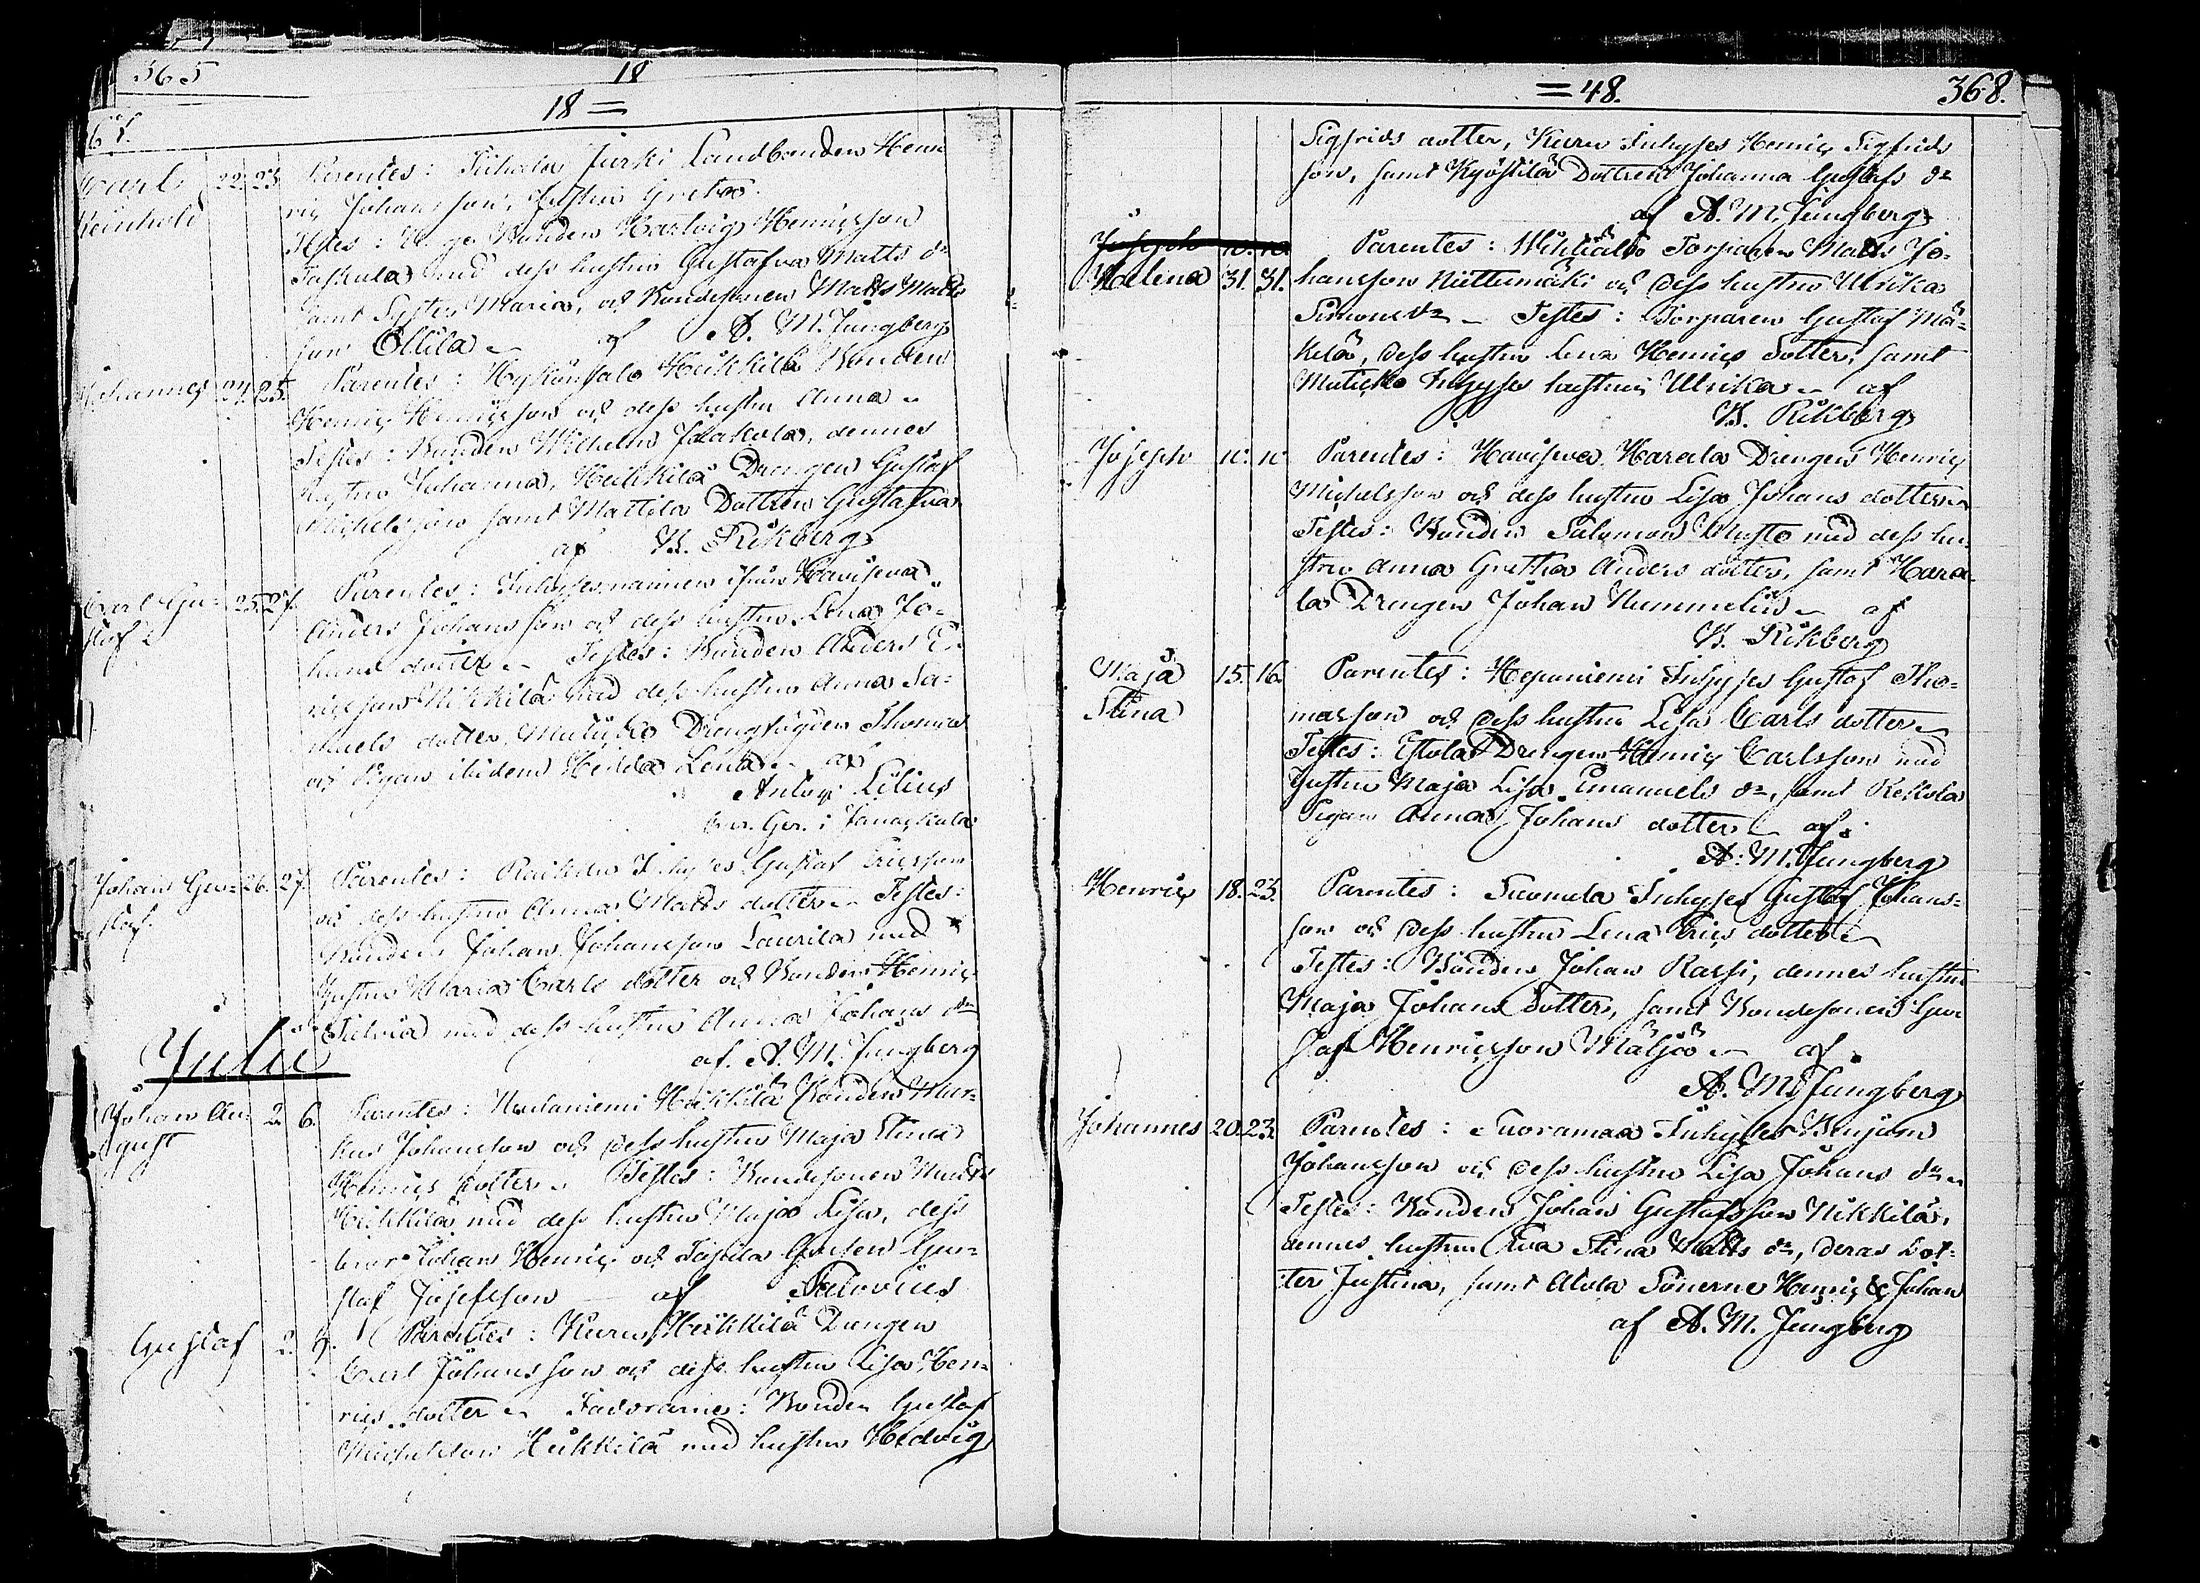 365
18
18 =
67.
Carl 22. 23. Parentes: Turki Landbonden Hen-
Reinhold ric Johansson, hustru Greta.
Testes: Bonden Hartvig Henricsson
Taskula med dess hustru Gustafva Matts dr
samt Syster Maria, och Bondesonen Matts Matts
son Ollila af A. M. Jungberg
Johannes 24. 25. Parentes: Heikkilä Bonden
Henric Henricsson och dess hustru Anna
Testes: Bonden Wilhelm Jaakola, dennes
hustru Johanna, Heikkilä Drengen Gustaf
Michelsson samt Mattila Dottren Gustafva
af B. Rikberg
Carl Gu- 25. 27. Parentes: Inhysesmannen ifrån Haviseva
staf Anders Johansson och dess hustru Lena Jo-
hans dotter Testes: Bonden Anders E-
ricsson Nikkilä med dess hustru Anna Sa-
muels dotter, Drengen Thomas
och Pigan Hedda Lena af
Anton Lilius
i Janackala
Johan Gu- 26. 27. Parentes: Inhyses Gustaf Ericsson
staf. och dess hustru Anna Matts dotter Testes:
Bonden Johan Johansson Laurila med
hustru Maria Carls dotter och Bonden Henric
med dess hustru Anna Johans dr
af A. M. Jungberg
Julii
Johan Au- 2. 6. Parentes: Heikkilä Bonden Mar-
gust kus Johansson och dess hustru Maja Stina
Henrics dotter Testes: Bondesonen
Heikkilä med dess hustru Maja Lisa, dess
bror Johan Henric och Gu-
staf Josefsson af Salovius
Gustaf 2. 9. Parentes: Kuru Heikkilä Drengen
Carl Johansson och dess hustru Lisa Hen-
rics dotter Bonden Gustaf
Michelsson Heikkilä med hustru Hedvig
= 48. 368.
Sigfrids dotter, Kuru Inhyses Henric Sigfrids
son, samt Kyöstilä Dottren Johanna Gustafs dr
af A. M. Jungberg
Joseph Parentes: Torparen Matts Jo-
Helena 31. 31. hansson Niittumäki och Dess hustru Ulrika
Simons dr Testes: Torparen Gustaf Mä-
kelä, dess hustru Lena Henrics dotter, samt
Inhyses hustrun Ulrika af
B. Rikberg
Joseph 11. 11. Parentes: Havisewa Harala Drengen Henric
Michelsson och dess hustru Lisa Johans dotter
Testes: Bonden Salomon med dess hu-
stru Anna Gretha Anders dotter, samt Hara-
la Drengen Johan Nummelin af
B. Rikberg
Maja 15. 16. Parentes: Hepaniemi Inhyses Gustaf Tho-
Stina masson och Dess hustru Lisa Carls dotter
Testes: Drengen Henric Carlsson med
hustru Maja Lisa Emanuels dr, samt Rekola
Pigan Anna Johans dotter af
A. M. Jungberg
Henric 18. 23. Parentes: Suomela Inhyses Gustaf Johans-
son och Dess hustru Lena Erics dotter
Testes: Bonden Johan Rassi, dennes hustru
Maja Johans Dotter, samt Bondesonen Gu-
staf Henricsson af
A. M. Jungberg
Johannes 20. 23. Parentes: Suoramaa Inhyses Benjam
Johansson och Dess hustru Lisa Johans dr
Testes: Bonden Johan Gustafsson Nikkilä,
dennes hustru Eva Stina Matts dr, deras Dot-
ter Justina, samt Alola Sönerne Henric & Johan
af A. M. Jungberg